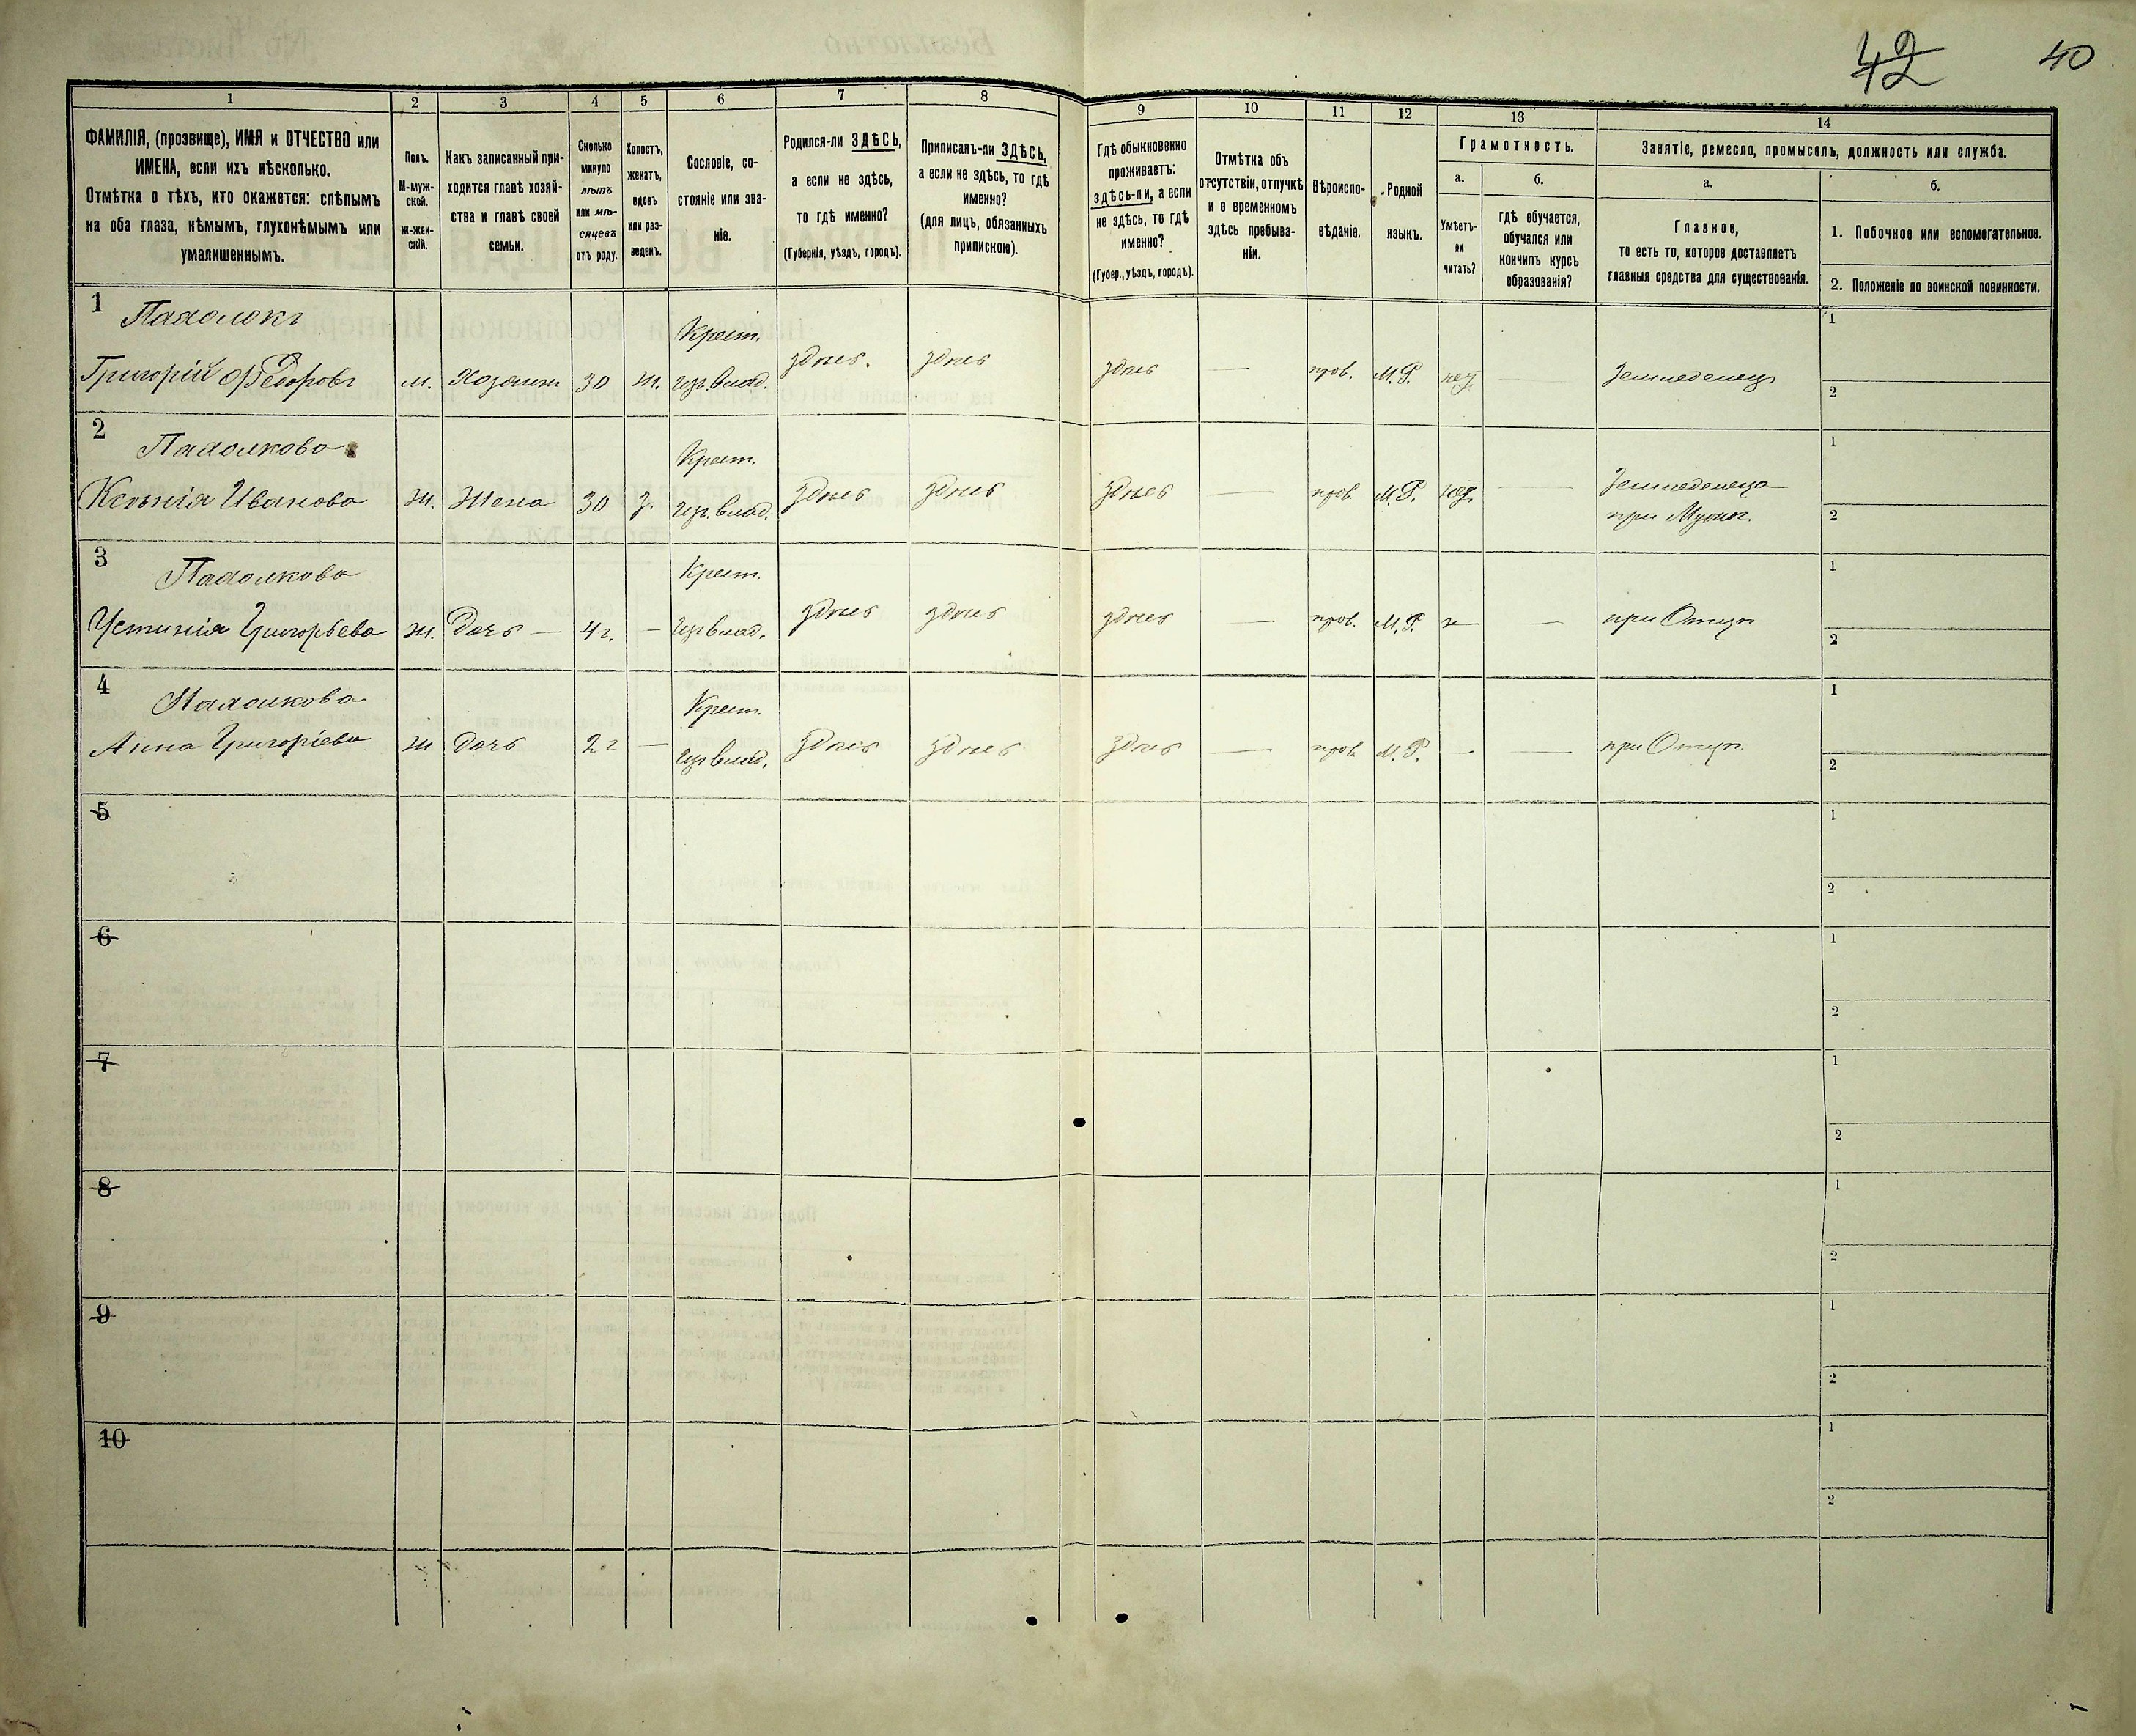 42 40
1 2 3 4 5 6 7 8 9 10 11 12 13 14
ФАМИЛІЯ, (прозвище), ИМЯ и ОТЧЕСТВО или
ИМЕНА, если ихъ нѣсколько.
Отмѣтка о тѣхъ, кто окажется: слѣпымъ
на оба глаза, нѣмымъ, глухонѣмымъ или
умалишеннымъ.
Полъ.
М-муж-
ской.
Ж-жен-
скій.
Какъ записанный при-
ходится главѣ хозяй-
ства и главѣ своей
семьи.
Сколько
минуло
лѣтъ
или мѣ-
сяцевъ
отъ роду.
Холостъ,
женатъ,
вдовъ
или раз-
веденъ.
Сословіе, со-
стояніе или зва-
ніе.
Родился-ли ЗДѢСЬ,
а если не здѣсь,
то гдѣ именно?
(Губернія, уѣздъ, городъ).
Приписанъ-ли ЗДѢСЬ,
а если не здѣсь, то гдѣ
именно?
(для лицъ, обязанныхъ
припискою).
Гдѣ обыкновенно
проживаетъ:
здѣсь-ли, а если
не здѣсь, то гдѣ
именно?
(Губер., уѣздъ, городъ).
Отмѣтка объ
отсутствіи, отлучкѣ
и о временномъ
здѣсь пребыва-
ніи.
Вѣроиспо-
вѣданіе.
Родной
языкъ.
Грамотность.
а.
Умѣетъ-
ли
читать?
б.
гдѣ обучается,
обучался или
кончилъ курсъ
образованія?
Занятіе, ремесло, промыселъ, должность или служба.
а.
Главное,
то есть то, которое доставляетъ
главныя средства для существованія.
б.
1. Побочное или вспомогательное.
2. Положеніе по воинской повинности.
1
Крест.
Григорій Ѳедоровъ м. Хозяин 30 ж. из. влад. здѣсь. здѣсь здѣсь — прав. М.Р. нет — Земледелецъ
1
2
2
Крест.
Ксенія Иванова ж. Жена 30 з. из. влад. здѣсь здѣсь здѣсь — прав М.Р. нет. — Земледелецъ
при Мужѣ.
1
2
3
Крест.
Устинія Григорьева ж. Дочь — 4 г. — из влад. здѣсь здѣсь здѣсь — прав. М.Р. — при Отцѣ
1
2
4
Крест.
Анна Григоріева ж Дочь 2 г — из влад. здѣсь здѣсь здѣсь — прав М.Р. — при Отцѣ
1
2
5
1
2
6
1
2
7
1
2
8
1
2
9
1
2
10
1
2